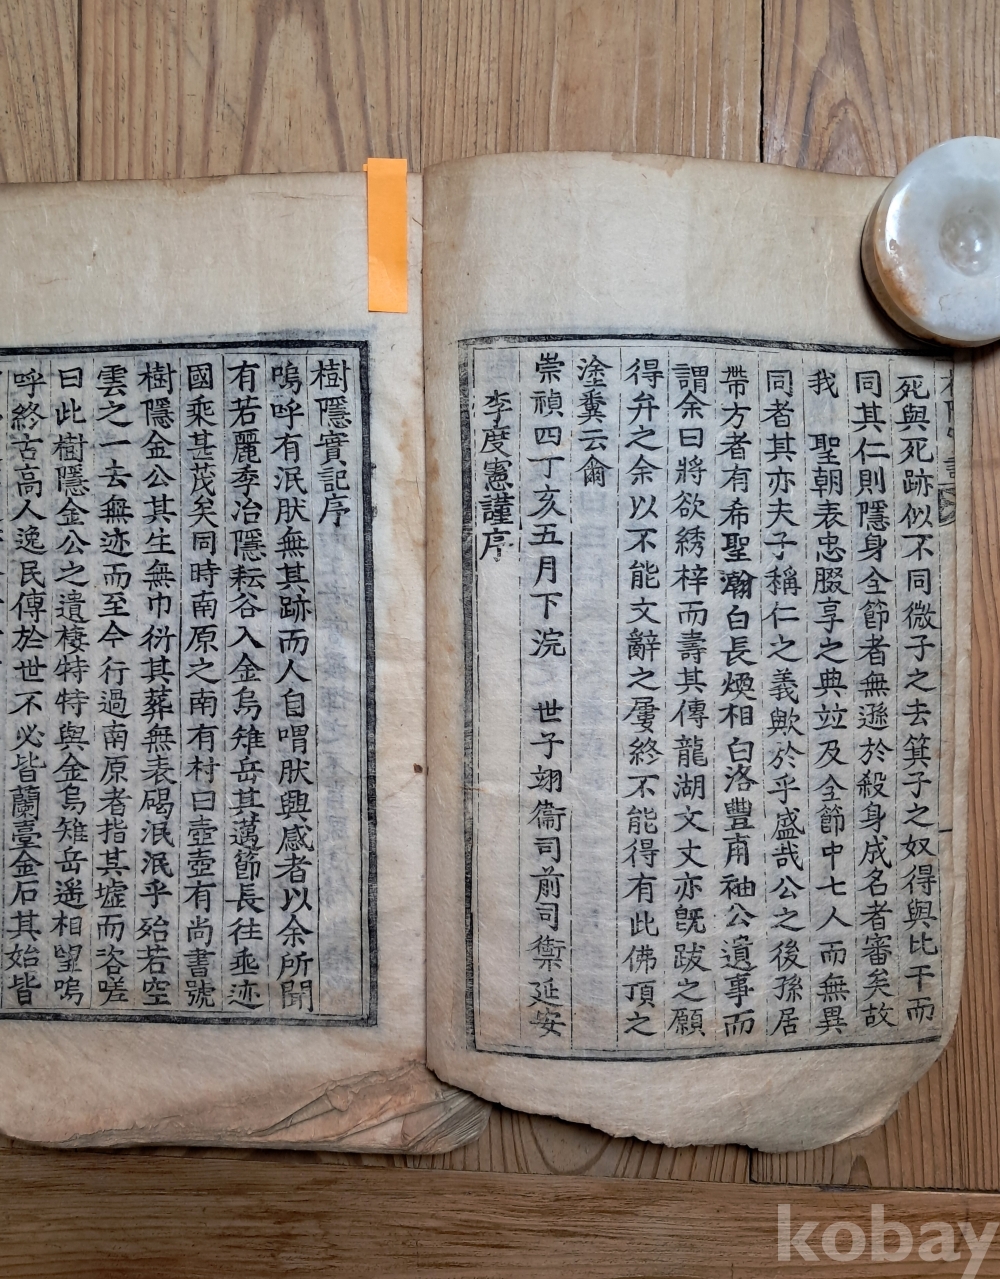 死與死跡似不同微子之去箕子之奴得與比干而
同其仁則隱身全節者無遜於殺身成名者審矣故
我 聖朝表忠腏享之典竝及全節中七人而無異
同者其亦夫子稱仁之義歟於乎盛哉公之後孫居
帶方者有希聖瀚白長煥相白洛豐甫袖公遺事而
謂余曰將欲綉梓而壽其傳龍湖文丈亦旣跋之願
得弁之余以不能文辭之屢終不能得有此佛頂之
塗糞云爾
崇禎四丁亥五月下浣 世子翊衞司前司禦延安
李度憲謹序
樹隱實記序
嗚呼有泯肰無其跡而人自喟肰興感者以余所聞
有若麗季冶隱耘谷入金烏雉岳其邁節長往乖迹
國乘甚茂矣同時南原之南有村曰壺壺有尚書號
樹隱金公其生無巾衍其葬無表碣泯泯乎殆若空
雲之一去無迹而至今行過南原者指其墟而咨嗟
曰此樹隱金公之遺棲特特與金烏雉岳遥相望嗚
呼終古高人逸民傳於世不必皆蘭臺金石其始皆
kobay